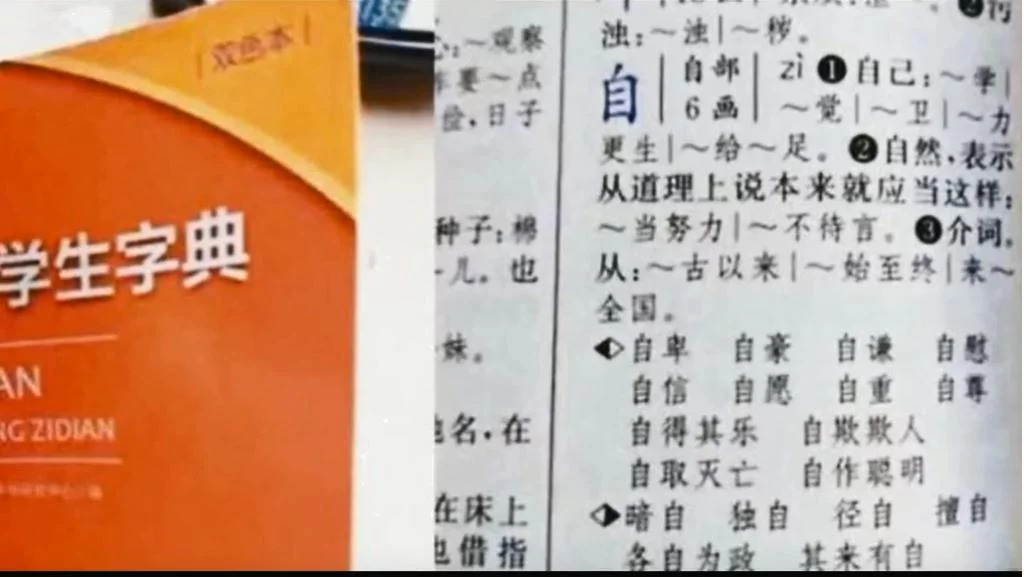 双色本
学生字典
AN
NG ZIDIAN
～观察
要～点
，日子
种子：棉
儿。也
妹。
名，在
在床上
也借指
浊：～浊|～秽。
自 自部 6画 zì ❶自己：～学|
～觉|～卫|～力
更生|～给～足。❷自然，表示
从道理上说本来就应当这样：
～当努力|～不待言。❸介词。
从：～古以来|～始至终|来～
全国。
自卑 自豪 自谦 自慰
自信 自愿 自重 自尊
自得其乐 自欺欺人
自取灭亡 自作聪明
暗自 独自 径自 擅自
各自为政 其来有自